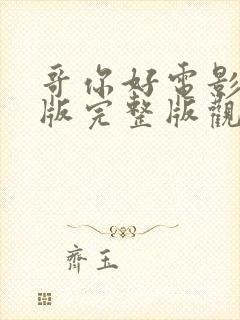 哥你好電影
版完整版觀
齊玉